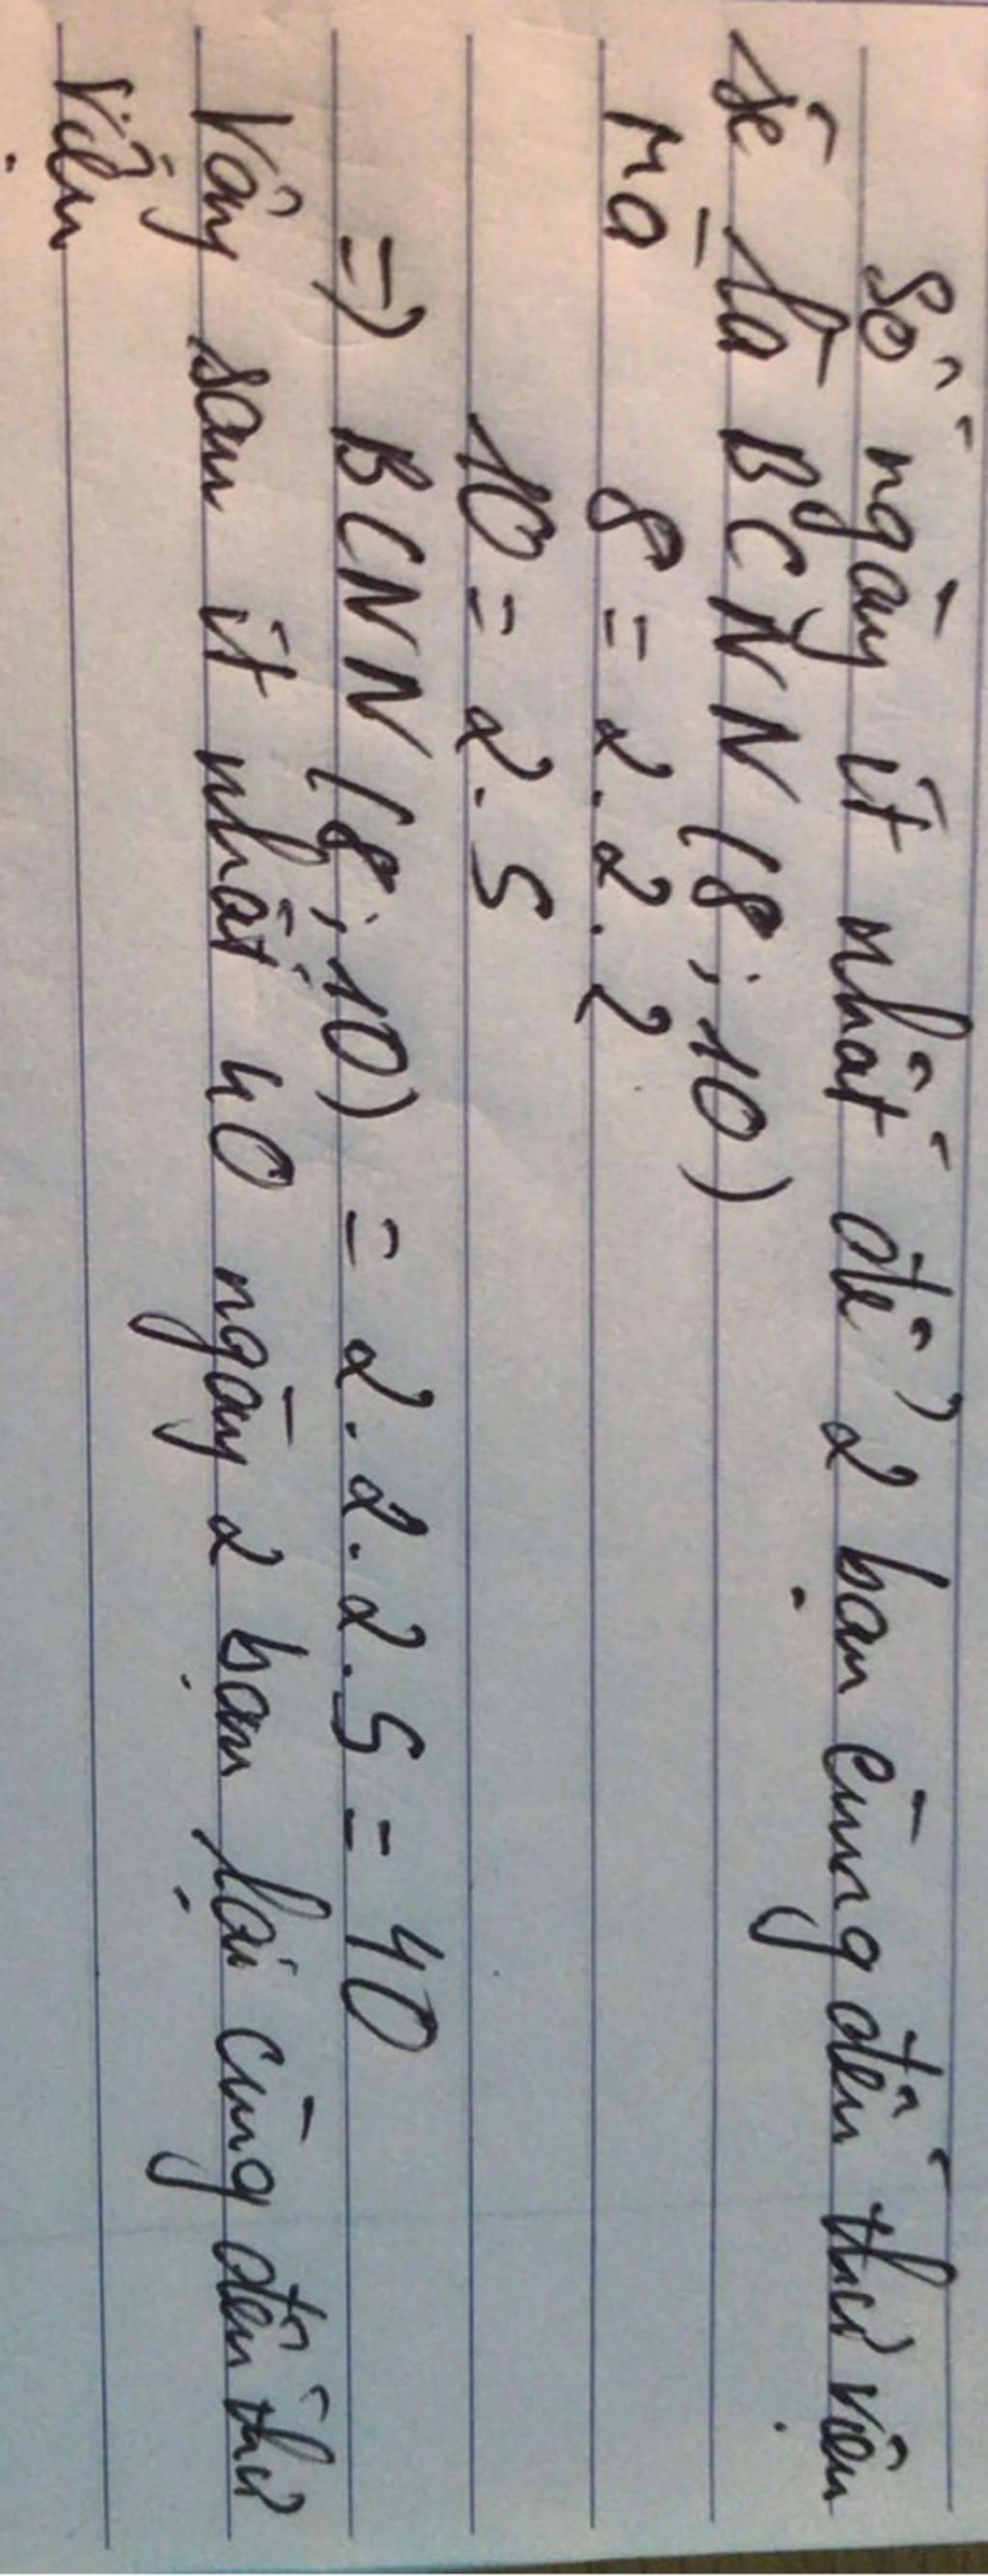 Số ngày ít nhất để 2 bạn cùng đến thư viện
sẽ là BCNN (8; 10)
Mà 8 = 2.2.2
10 = 2.5
=> BCNN (8; 10) = 2.2.2.5 = 40
Vậy sau ít nhất 40 ngày 2 bạn lại cùng đến thư
viện